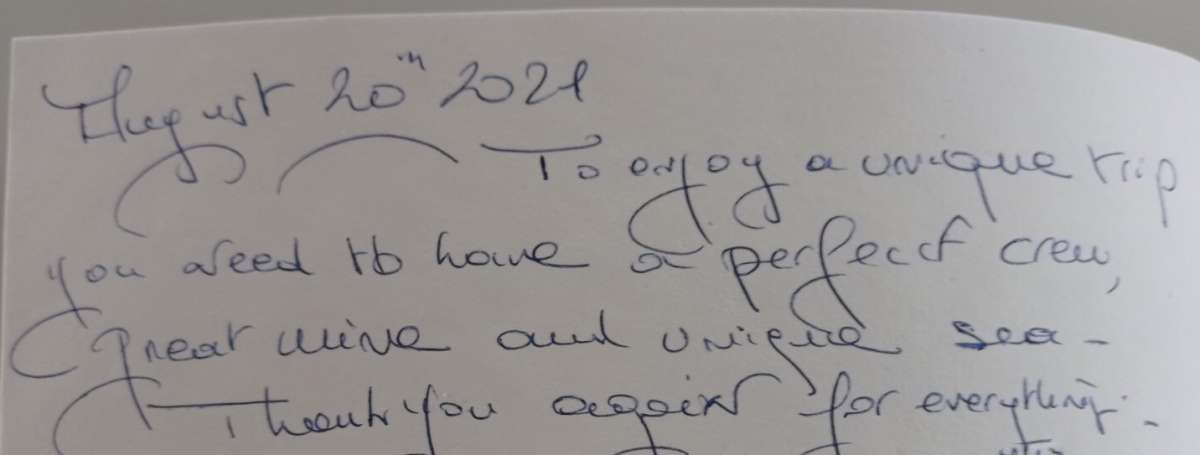 August 20th 2021
To enjoy a unique trip
you need to have a perfect crew,
great wine and unique sea -
Thank you again for everything -